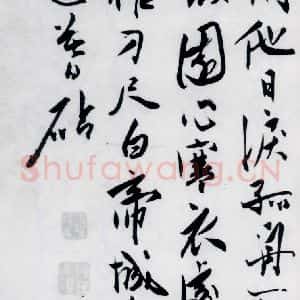 開他日淚孤舟一
故園心寒衣處
催刀尺白帝城
急暮砧
Shufawang.CN